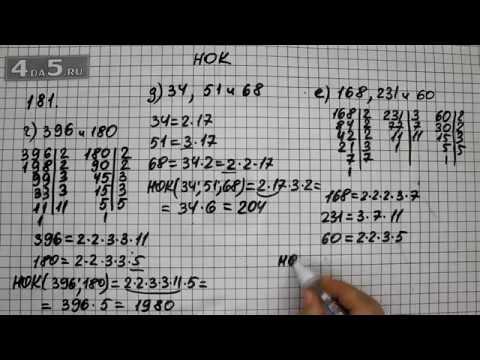 4DA5.RU
НОК
181.
г) 396 и 180
396|2 180|2
198|2 90|2
99|3 45|3
33|3 15|3
11|11 5|5
1 1
396=2·2·3·3·11
180=2·2·3·3·5
НОК(396;180)=2·2·3·3·11·5=
=396·5=1980
д) 34, 51 и 68
34=2·17
51=3·17
68=34·2=2·2·17
НОК(34;51;68)=2·17·3·2=
=34·6=204
е) 168, 231 и 60
168|2 231|3 60|2
84|2 77|7 30|2
42|2 11|11 15|3
21|3 1 5|5
7|7 1
1
168=2·2·2·3·7
231=3·7·11
60=2·2·3·5
НО